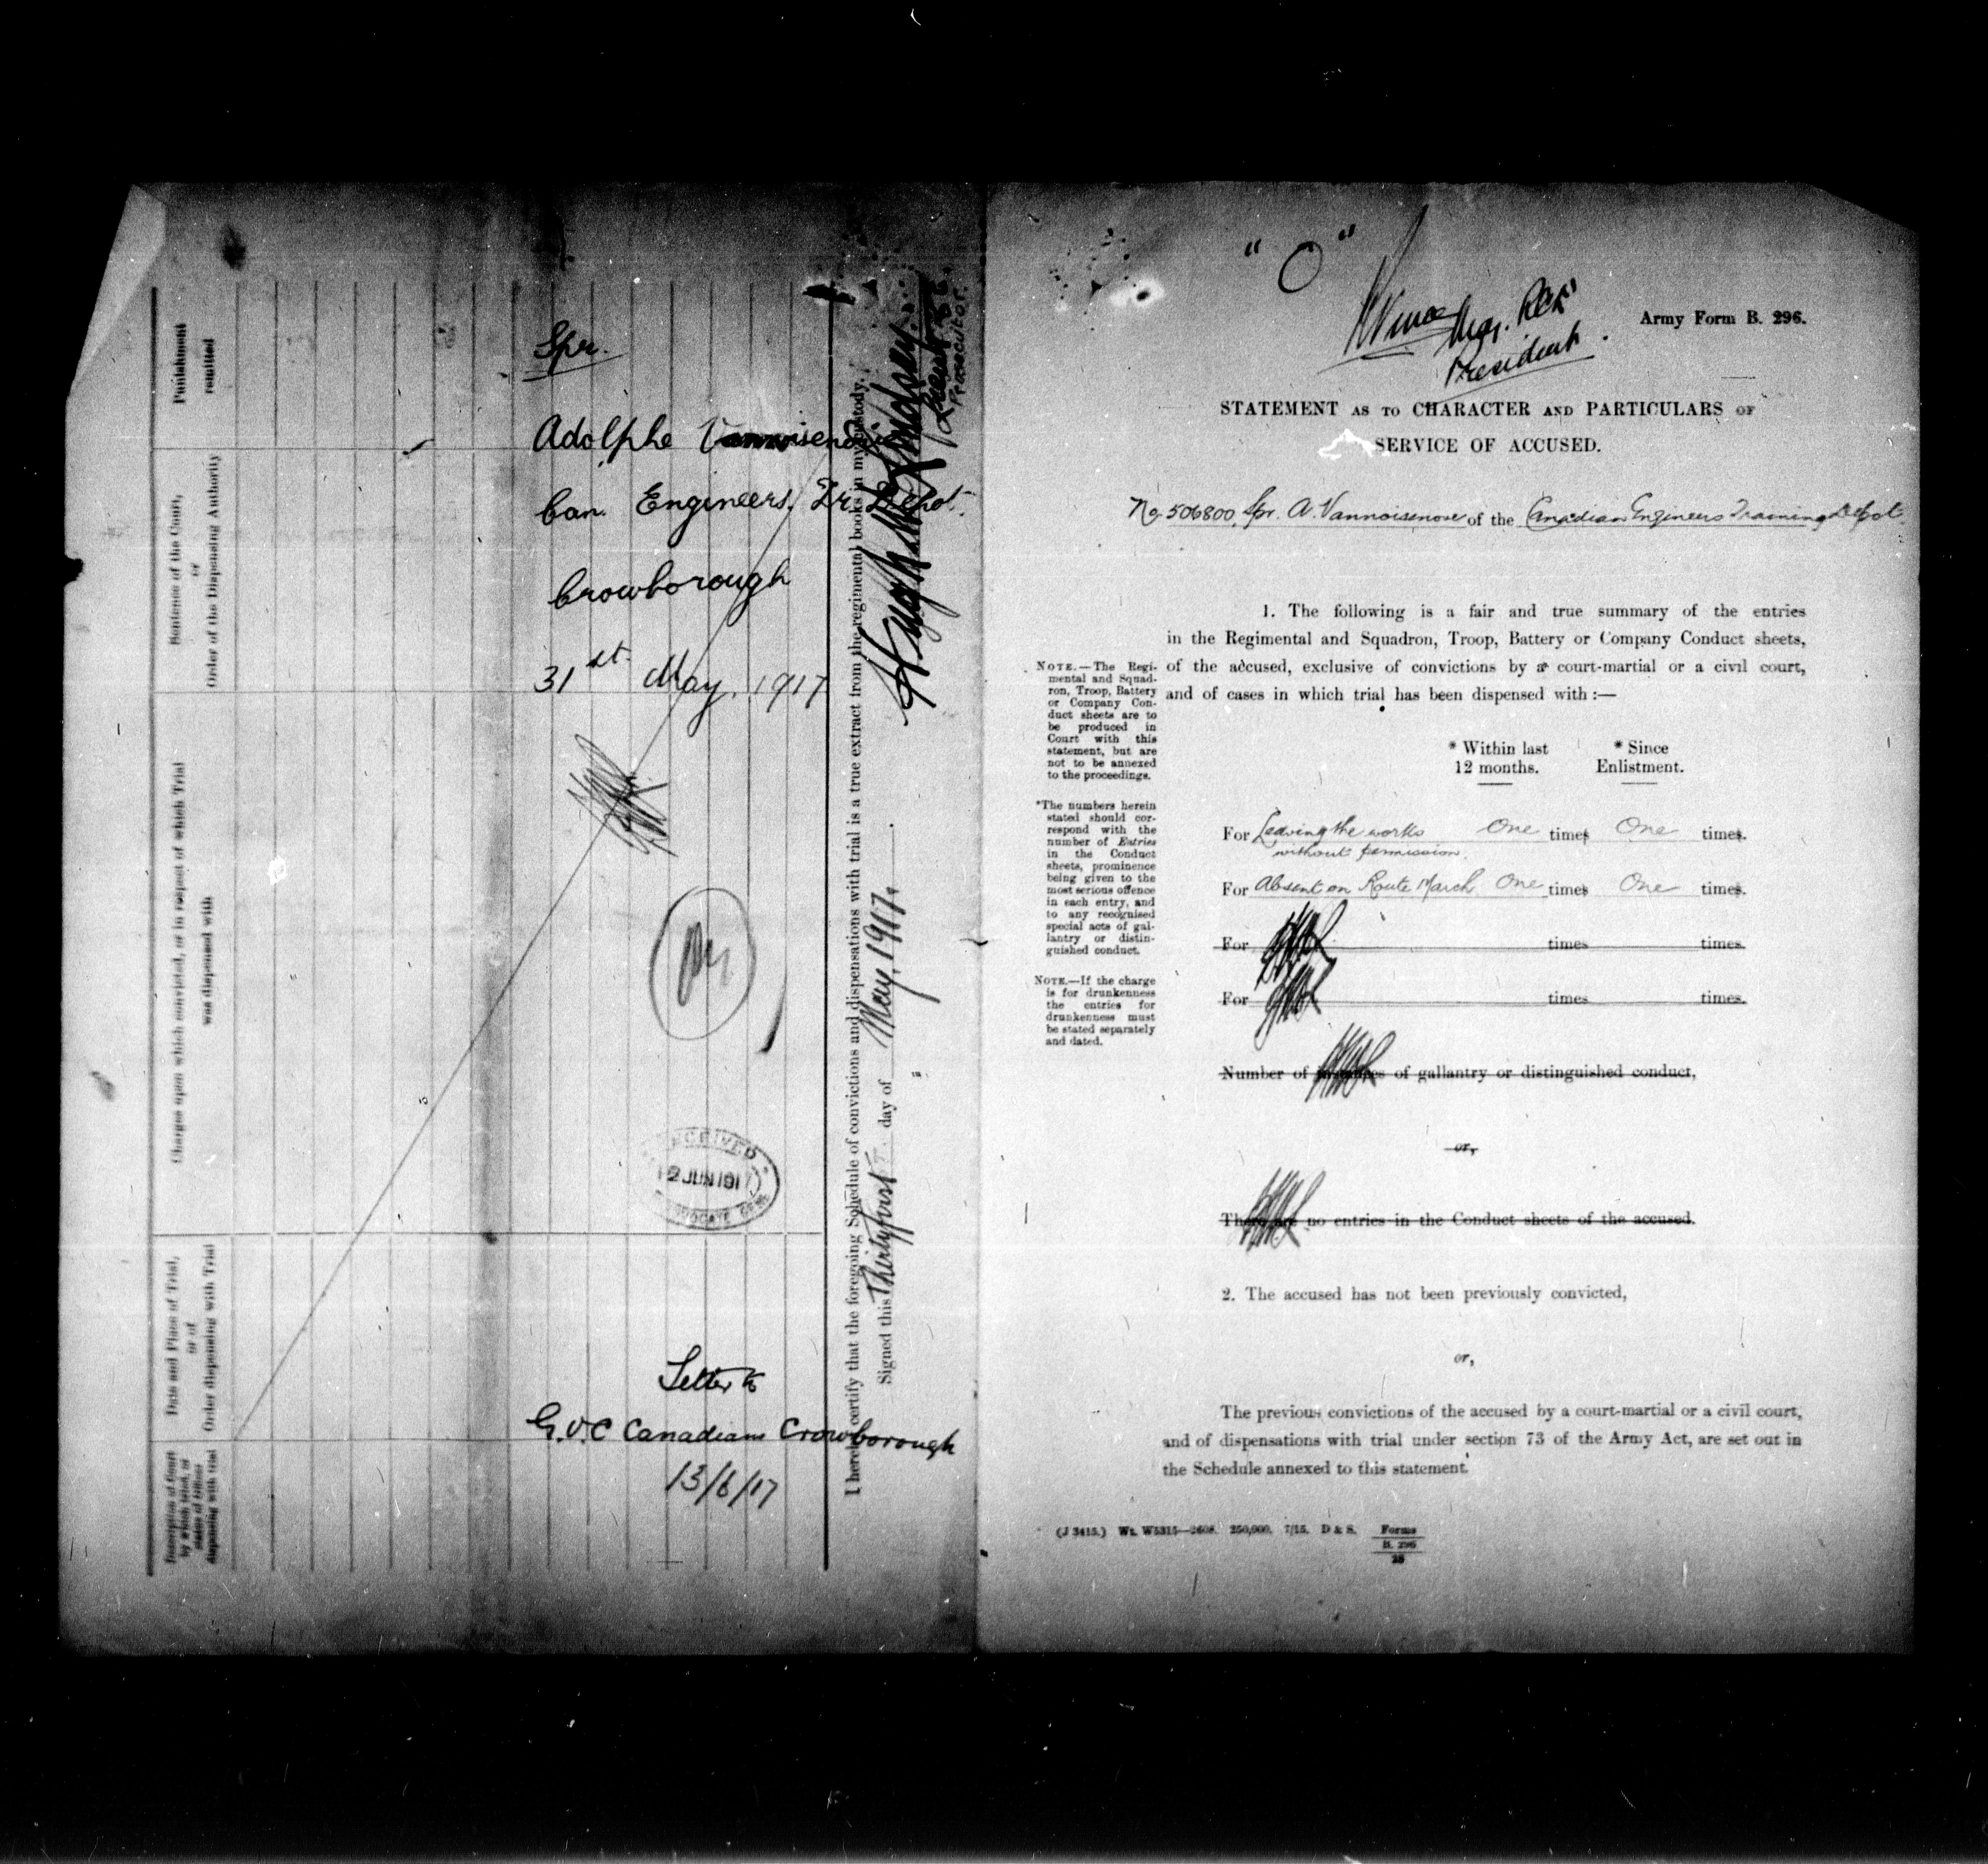 Punishment
remitted
Sentence of the Court,
or
Order of the Dispensing Authority
Charges upon which convicted, or in respect of which Trial
was dispensed with
Date and Place of Trial,
or of
Order dispensing with Trial
Description of Court
by which tried, or
status of Officer
dispensing with trial
Spr.
Adolphe
Can. Engineers. Tr. Depot.
Crowborough
31st May, 1917
RECEIVED
2 JUN 1917
ADVOCATE GENL
Letter to
G.O.C Canadians Crowborough
13/6/17
I hereby certify that the foregoing Schedule of convictions and dispensations with trial is a true extract from the regimental books in my custody.
Signed this Thirtyfirst day of May, 1917.
Hugh Lindsay
Lieut
Prosecutor.
"O"
Maj. RCR
President.
Army Form B. 296.
STATEMENT AS TO CHARACTER AND PARTICULARS OF
SERVICE OF ACCUSED.
No. 506800, Spr. A. Vannoisenove of the Canadian Engineers Training Depot.
1. The following is a fair and true summary of the entries
in the Regimental and Squadron, Troop, Battery or Company Conduct sheets,
of the accused, exclusive of convictions by a court-martial or a civil court,
and of cases in which trial has been dispensed with :—
NOTE.—The Regi-
mental and Squad-
ron, Troop, Battery
or Company Con-
duct sheets are to
be produced in
Court with this
statement, but are
not to be annexed
to the proceedings.
*The numbers herein
stated should cor-
respond with the
number of Entries
in the Conduct
sheets, prominence
being given to the
most serious offence
in each entry, and
to any recognised
special acts of gal-
lantry or distin-
guished conduct.
NOTE.—If the charge
is for drunkenness
the entries for
drunkenness must
be stated separately
and dated.
* Within last
12 months.
* Since
Enlistment.
For Leaving the works One times One times.
without permission.
For Absent on Route March One times One times.
For times times.
For times times.
Number of instances of gallantry or distinguished conduct,
or,
There are no entries in the Conduct sheets of the accused.
2. The accused has not been previously convicted,
or,
The previous convictions of the accused by a court-martial or a civil court,
and of dispensations with trial under section 73 of the Army Act, are set out in
the Schedule annexed to this statement.
(J 3415.) Wt. W5315—2608. 250,000. 7/15. D & S. Forms
B. 296
28